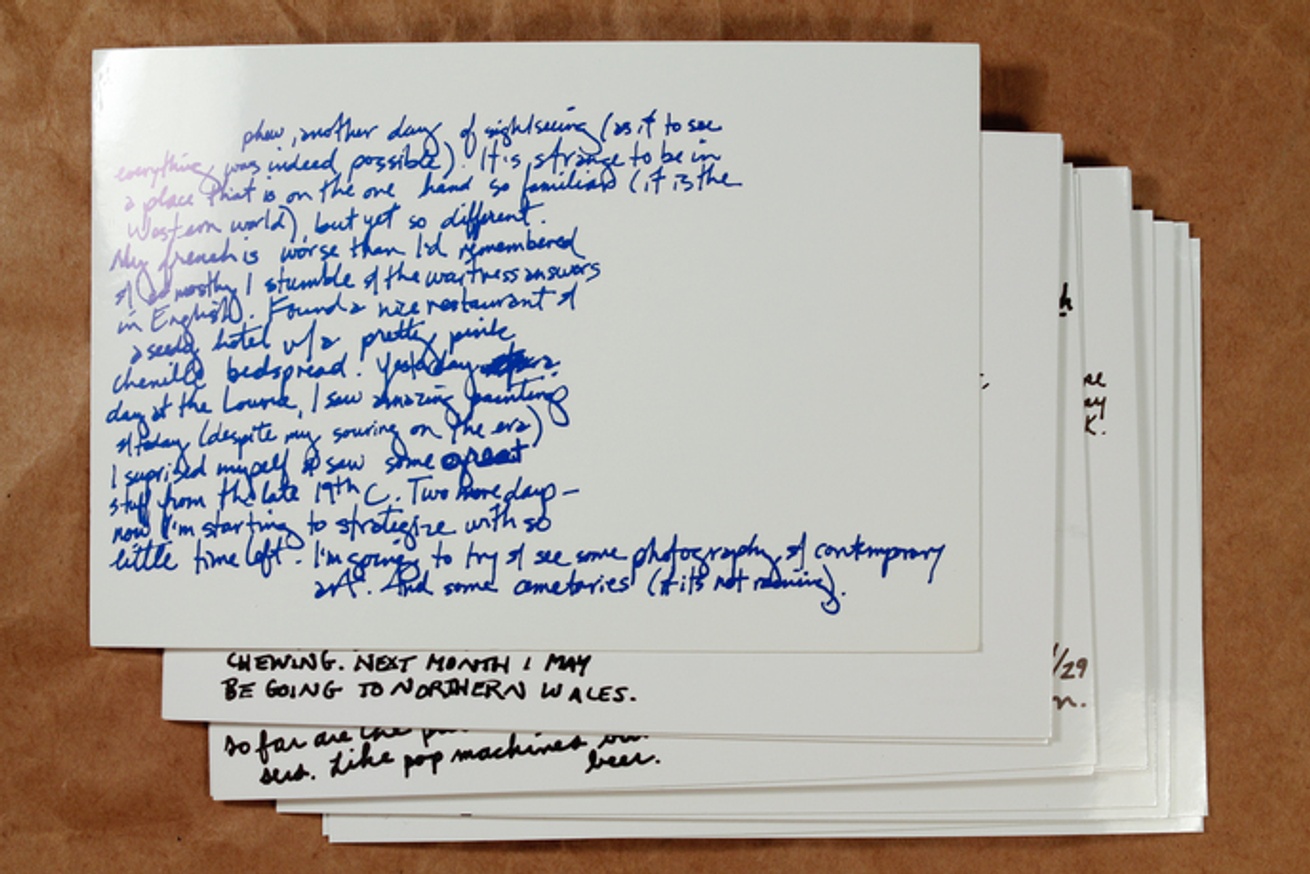 phew, another day of sightseeing (as if to see
everything was indeed possible). It's strange to be in
a place that is on the one hand so familiar (it is the
Western world), but yet so different.
My french is worse than I'd remembered
& so mostly I stumble & the waitress answers
in English. Found a nice restaurant &
a seedy hotel w/a pretty pink
chenille bedspread. Yesterday
day at the Louvre, I saw amazing paintings
& today (despite my souring on the era)
I suprised myself & saw some great
stuff from the late 19th C. Two more days –
now I'm starting to strategize with so
little time left. I'm going to try & see some photography & contemprary
art. And some cemetaries (if it's not raining).
CHEWING. NEXT MONTH I MAY
BE GOING TO NORTHERN WALES.
so far are the
Like pop machines
beer.
/29
K.